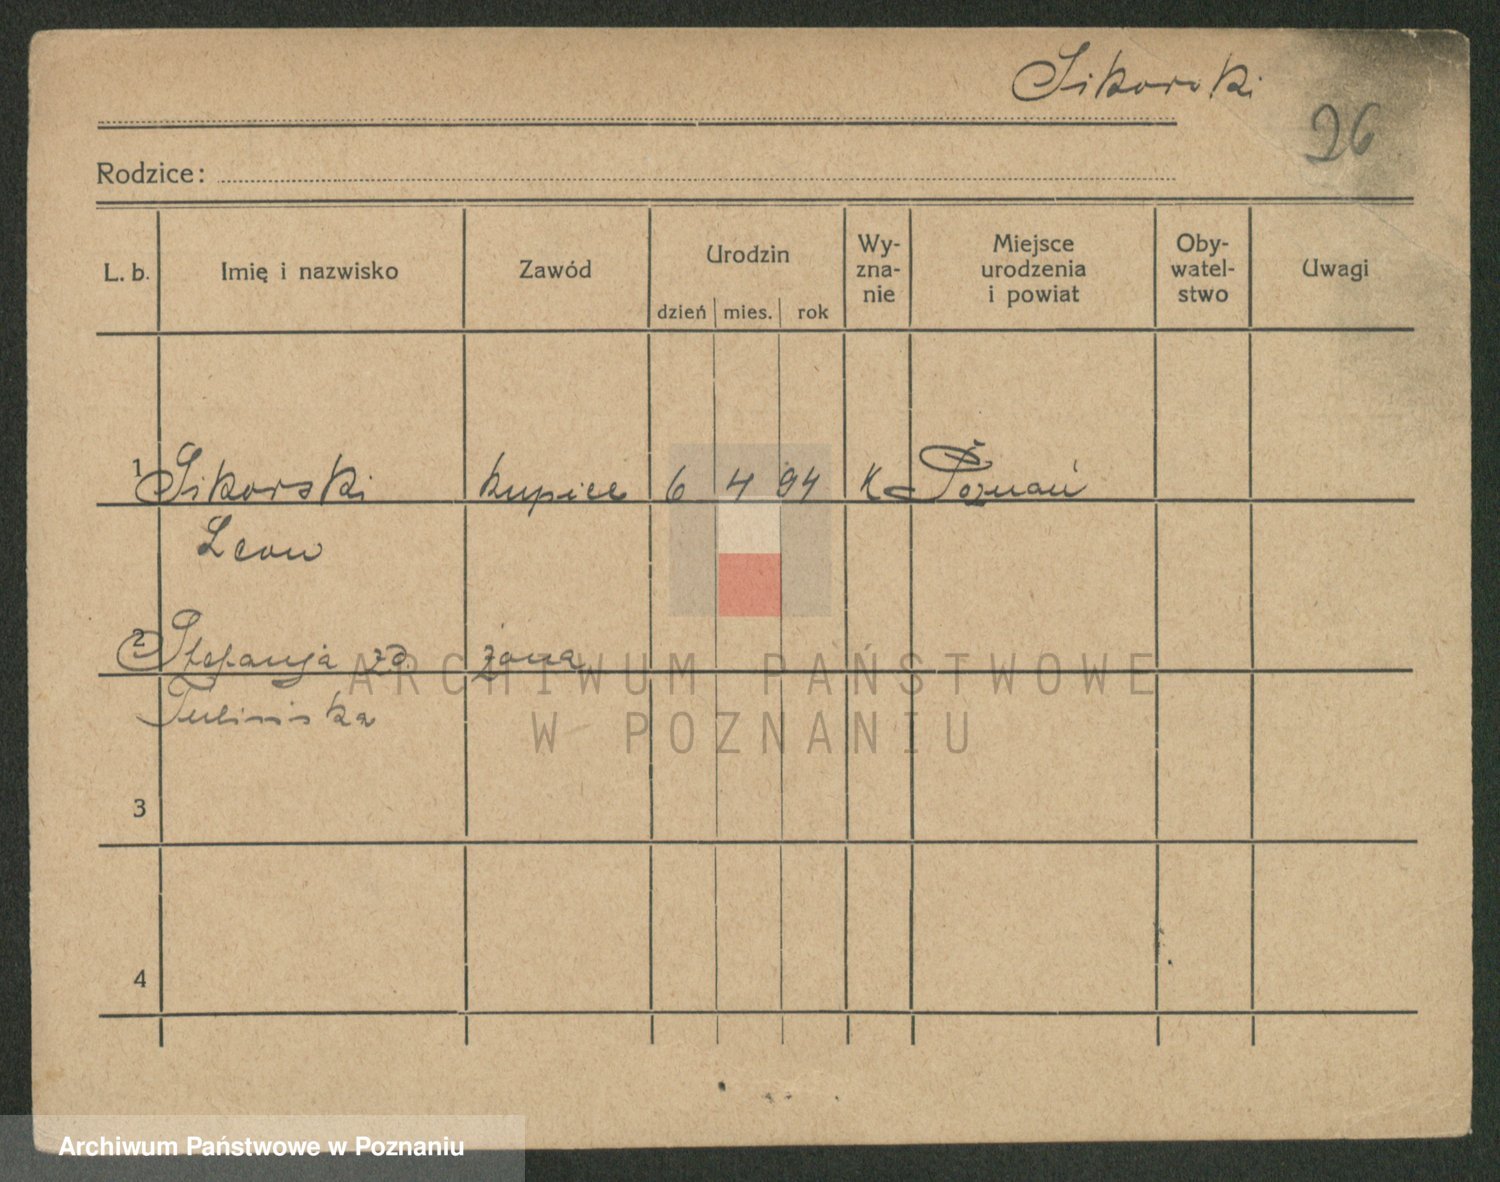 Sikorski
96
Rodzice:
L. b. Imię i nazwisko Zawód Urodzin Wy- Miejsce Oby- Uwagi
zna- urodzenia watel-
nie i powiat stwo
dzień mies. rok
1 Sikorski kupiec 6 4 94 K Poznań
Leon
2 Stefanja zd. żona
3
4
ARCHIWUM PAŃSTWOWE
W POZNANIU
Archiwum Państwowe w Poznaniu